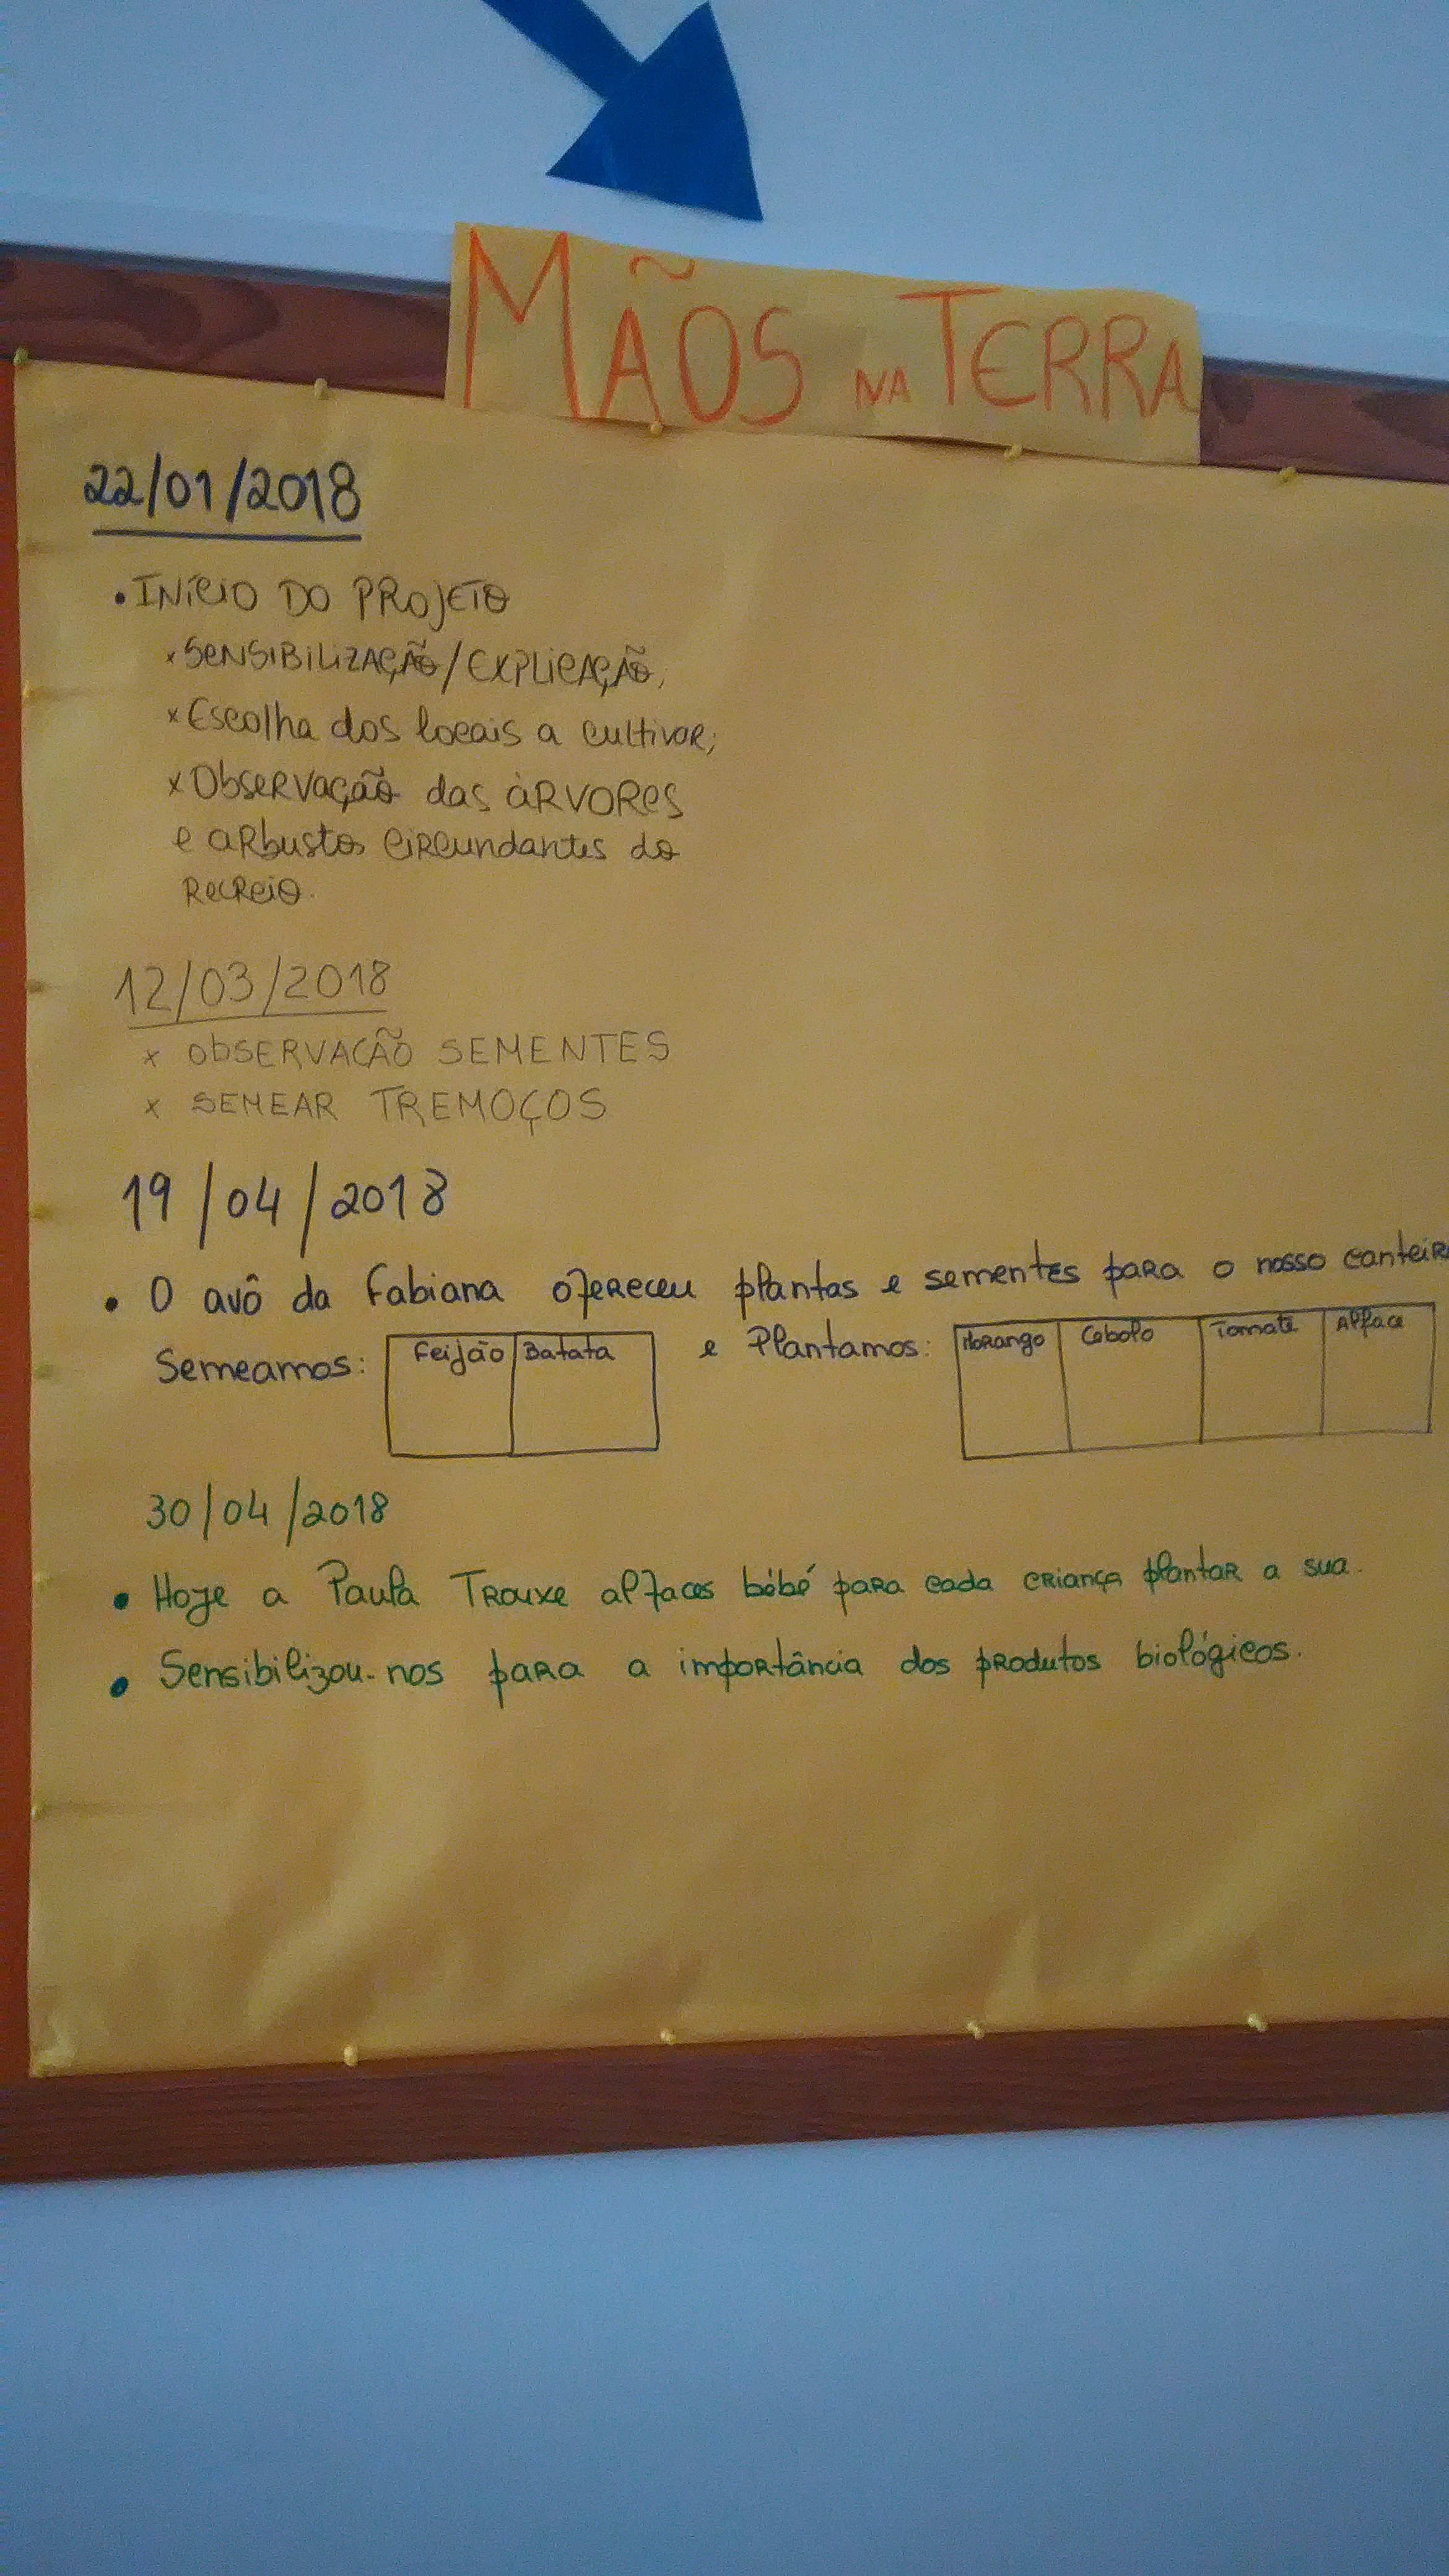 MÃOS NA TERRA
22/01/2018
• INÍCIO DO PROJETO
x SENSIBILIZAÇÃO/EXPLICAÇÃO;
x Escolha dos locais a cultivar;
x Observação das àrvores
e arbustos circundantes do
recreio.
12/03/2018
x OBSERVAÇÃO SEMENTES
x SEMEAR TREMOÇOS
19/04/2018
• O avô da Fabiana ofereceu plantas e sementes para o nosso canteir
Semeamos: Feijão Batata e Plantamos: Morango Cebolo Tomate Alface
30/04/2018
• Hoje a Paula Trouxe alfaces bébé para cada criança plantar a sua.
• Sensibilizou-nos para a importância dos produtos biológicos.